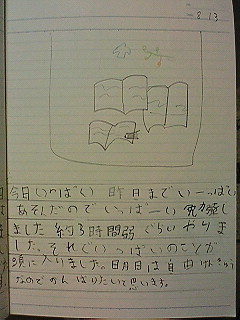 8 13
今日いっぱい 昨日までいーっぱい
あそんだのでいっぱーい勉強し
ました約3時間弱ぐらいやりま
した。それでいっぱいのことが
頭に入りました。明日は自由けんきゅう
なのでがんばりたいと思います。